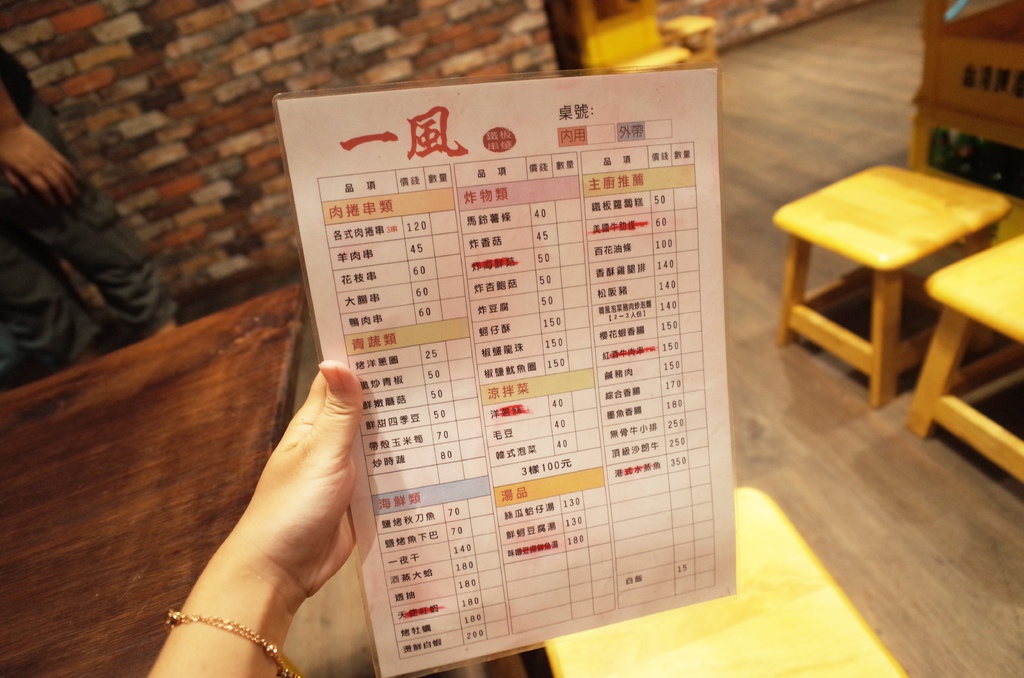 一風
鐵板
串燒
桌號:
內用 外帶
品項 價錢 數量
肉捲串類
各式肉捲串3串 120
羊肉串 45
花枝串 60
大腸串 60
鴨肉串 60
青蔬類
烤洋蔥圈 25
炒青椒 50
鮮嫩蘑菇 50
鮮甜四季豆 50
帶殼玉米筍 70
炒時蔬 80
海鮮類
鹽烤秋刀魚 70
鹽烤魚下巴 70
一夜干 140
酒蒸大蛤 180
透抽 180
天使紅蝦 180
烤牡蠣 180
燙鮮白蝦 200
品項 價錢 數量
炸物類
馬鈴薯條 40
炸香菇 45
炸海鮮菇 50
炸杏鮑菇 50
炸豆腐 50
蚵仔酥 150
椒鹽龍珠 150
椒鹽魷魚圈 150
涼拌菜
洋蔥絲 40
毛豆 40
韓式泡菜 40
3樣100元
湯品
絲瓜蛤仔湯 130
鮮蚵豆腐湯 130
味噌豆腐鮮魚湯 180
品項 價錢 數量
主廚推薦
鐵板蘿蔔糕 50
美國牛肋條 60
百花油條 100
香酥雞腿排 140
松阪豬 140
韓風泡菜豬肉炒泡麵
【2~3人份】 140
櫻花蝦香腸 150
紅酒牛肉串 150
鹹豬肉 150
綜合香腸 170
墨魚香腸 180
無骨牛小排 250
頂級沙朗牛 250
港式水蒸魚 350
白飯 15
台灣